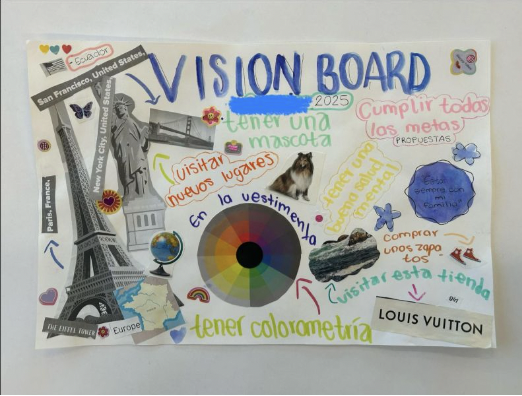 VISION BOARD
2025
Ecuador
San Francisco, United States,
New York City, United States,
Paris, France,
tener una
mascota
Cumplir todas
las metas
PROPUESTAS
visitar
nuevos lugares
tener una
buena salud
mental
En la vestimenta
Estar
siempre con
mi
familia
Comprar
unos zapa
tos
visitar esta tienda
LOUIS VUITTON
THE EIFFEL TOWER
Europe
tener colorometría